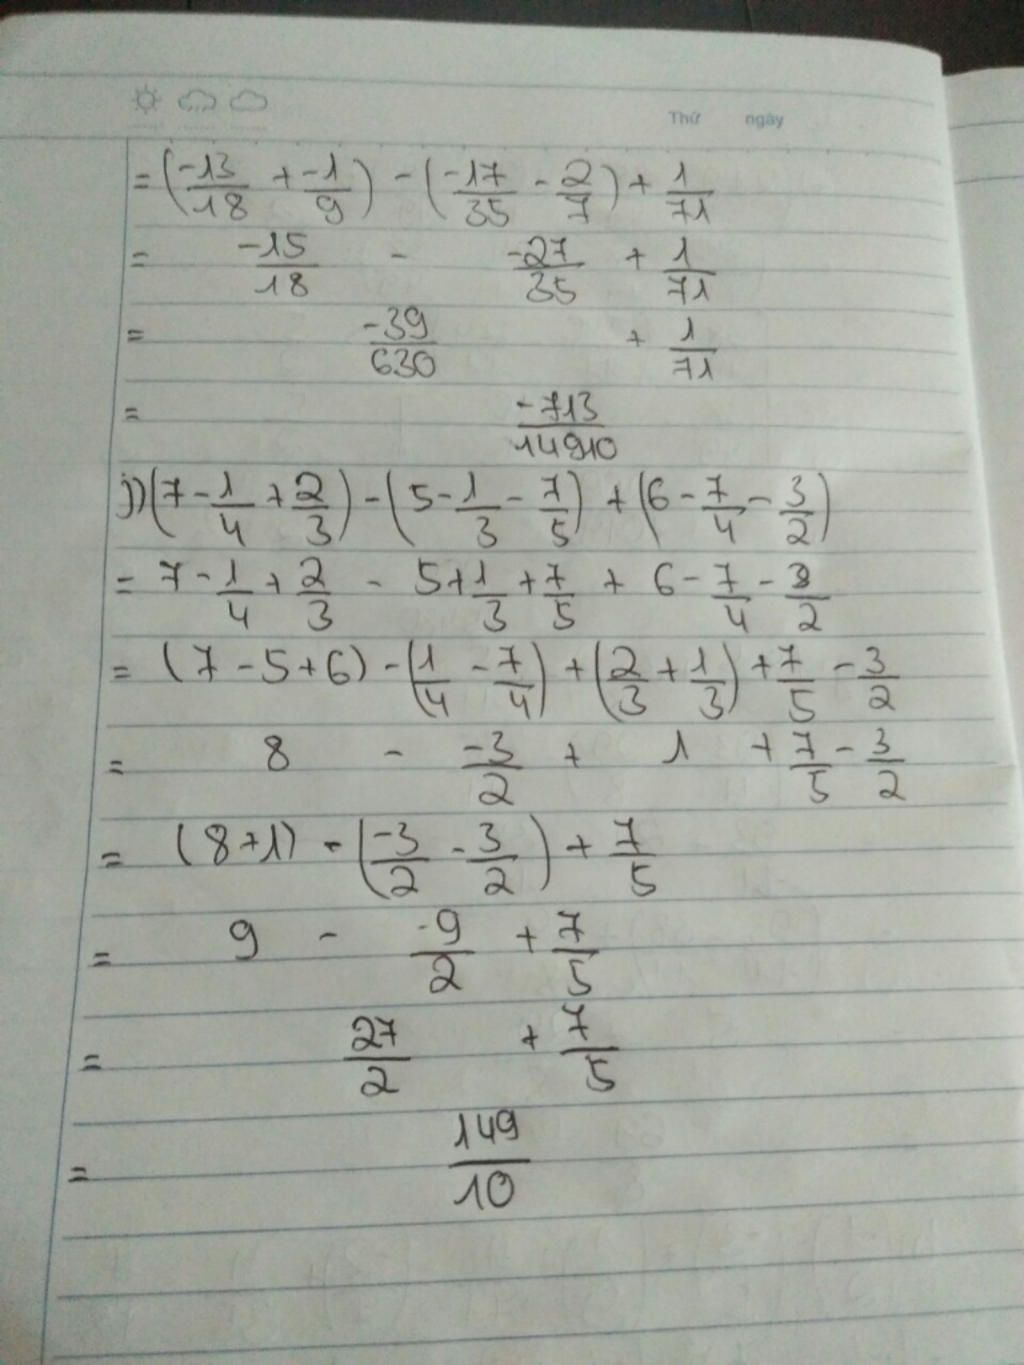 Thứ ngày
= (-13/18 + -1/9) - (-17/35 - 2/7) + 1/71
= -15/18 - -27/35 + 1/71
= -39/630 + 1/71
= -713/14910
j) (7 - 1/4 + 2/3) - (5 - 1/3 - 7/5) + (6 - 7/4 - 3/2)
= 7 - 1/4 + 2/3 - 5 + 1/3 + 7/5 + 6 - 7/4 - 3/2
= (7 - 5 + 6) - (1/4 - 7/4) + (2/3 + 1/3) + 7/5 - 3/2
= 8 - -3/2 + 1 + 7/5 - 3/2
= (8 + 1) - (-3/2 - 3/2) + 7/5
= 9 - -9/2 + 7/5
= 27/2 + 7/5
= 149/10